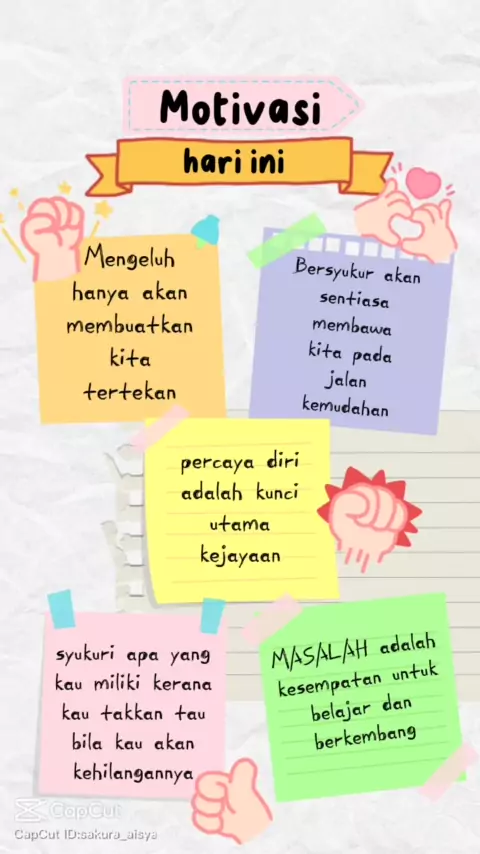 Motivasi
hari ini
Mengeluh
hanya akan
membuatkan
kita
tertekan
Bersyukur akan
sentiasa
membawa
kita pada
jalan
kemudahan
percaya diri
adalah kunci
utama
kejayaan
syukuri apa yang
kau miliki kerana
kau takkan tau
bila kau akan
kehilangannya
MASALAH adalah
kesempatan untuk
belajar dan
berkembang
CapCut
CapCut ID:sakura_aisya